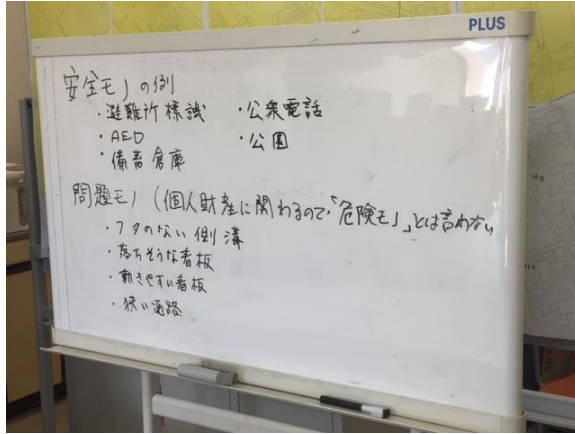 PLUS
安全モノの例
・避難所標識 ・公衆電話
・AED ・公園
・備蓄倉庫
問題モノ（個人財産に関わるので「危険モノ」とは言わない
・フタのない側溝
・落ちそうな看板
・動きやすい看板
・狭い通路
H-g